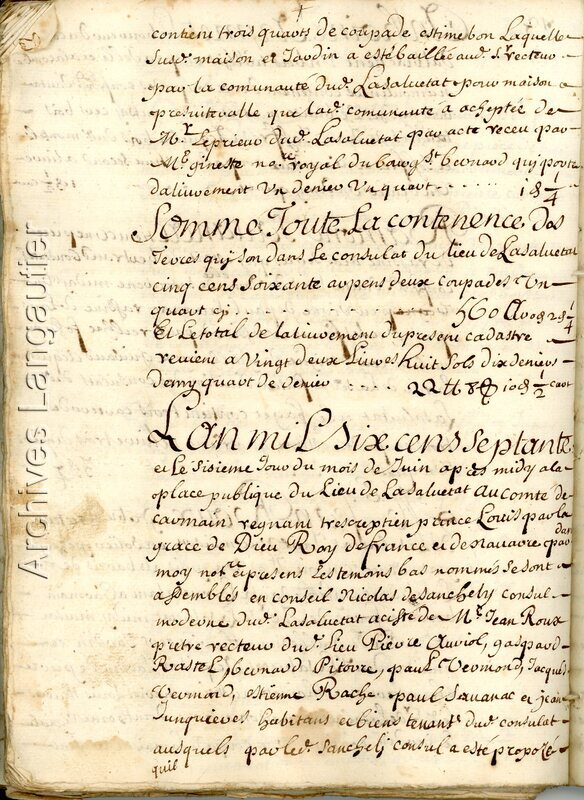 contient trois quarts de coupade estime bon Laquelle
susd. maison et Jardin a esté baillée aud. Sr. recteur
par la comunauté dud. Lasaluetat pour maison
presbiteralle que lad. comunauté a acheptée de
Mr. Leprieur dud. Lasaluetat par acte receu par
Me. gineste nore. royal du bourg St. bernard qui porte
daliurement Un denier Un quart - - - - - - 1 d 1/4
Somme Toute La contenence des
Terres qui son dans Le consulat du lieu de Lasaluetat
cinq cens Soixante arpens deux coupades Un
quart cy . . . . . 560 A
Et Le total de laliurement du present cadastre
revient a Vingt deux Liures huit Sols dix deniers
demy quart de denier . . . . . 22 tt 8
Lan mil six cens septante
et Le sisieme Jour du mois de Juin apres midy a la
place publique du Lieu de Lasaluetat au comte de
carmain regnant prince Louis par la
grace de Dieu Roy de france et de Nauarre par dan
moy notre. et presens Les temoins bas nommés se sont
assemblés en conseil Nicolas desanchely consul
moderne dud. Lasaluetat aciste de Mr. Jean Roux
pretre recteur dud. Lieu Pierre Auriol, gaspard
Rastel, bernard Pitorre, paul Vermond, Jacques
Vermond, estienne Rache paul Sauanac et jean
Junquieres habitans et biens tenants. dud. consulat
ausquels par led. sanchelj consul a esté propozé
quil
Archives Langautier